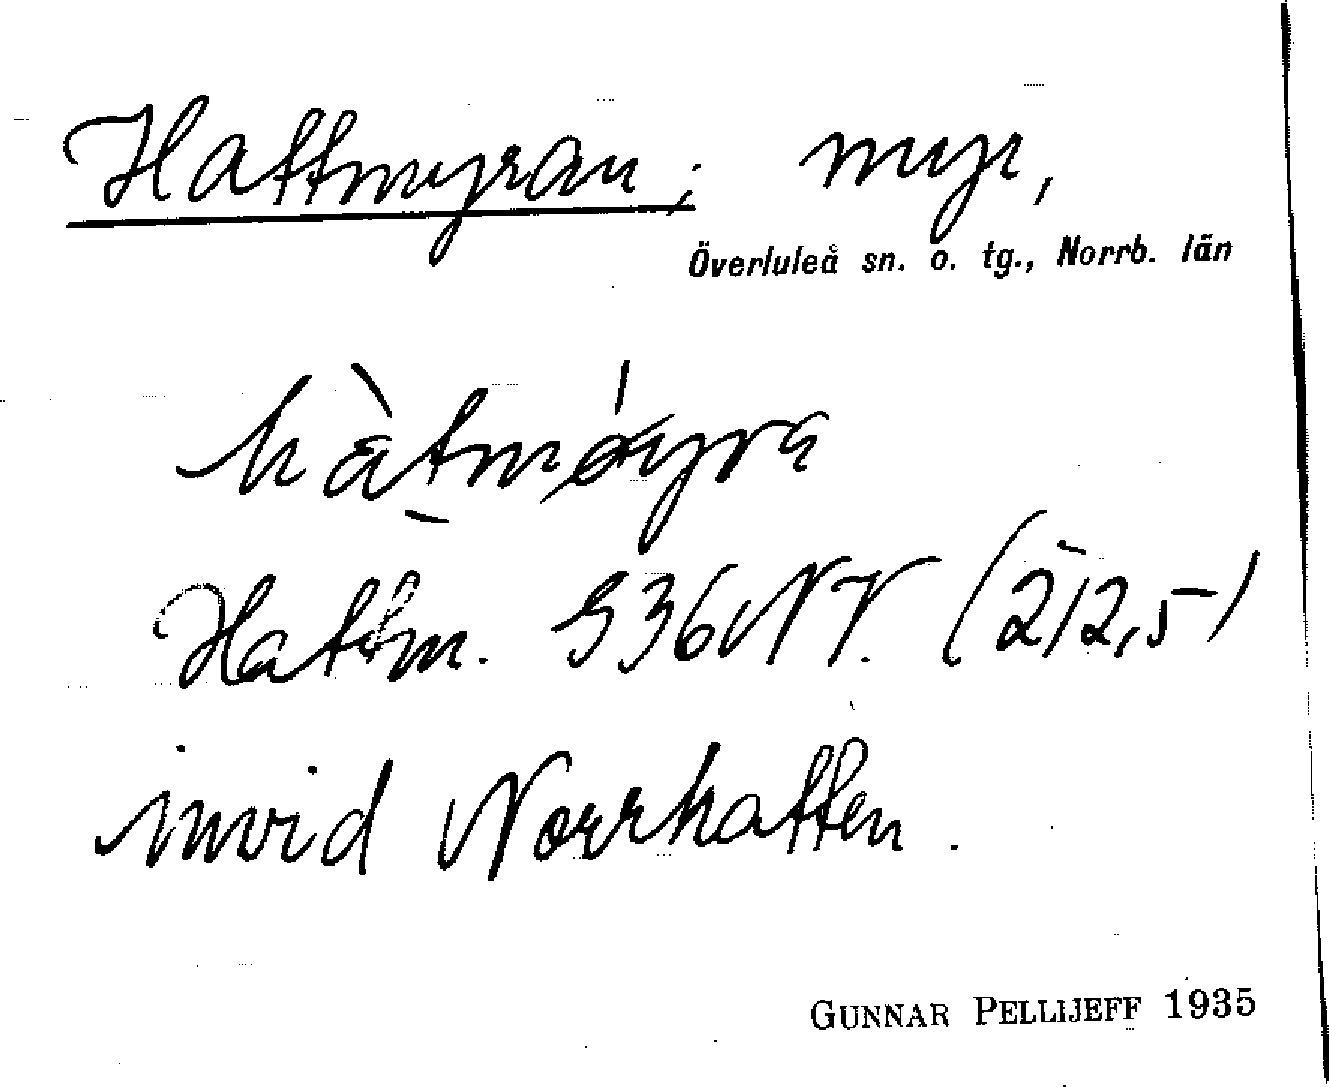 Hattmyran; myr,
Överluleå sn. o. tg., Norrb. län
hàtmǿyra
Hattm. S36NV. (2/2,5)
invid Norrhatten.
GUNNAR PELLIJEFF 1935